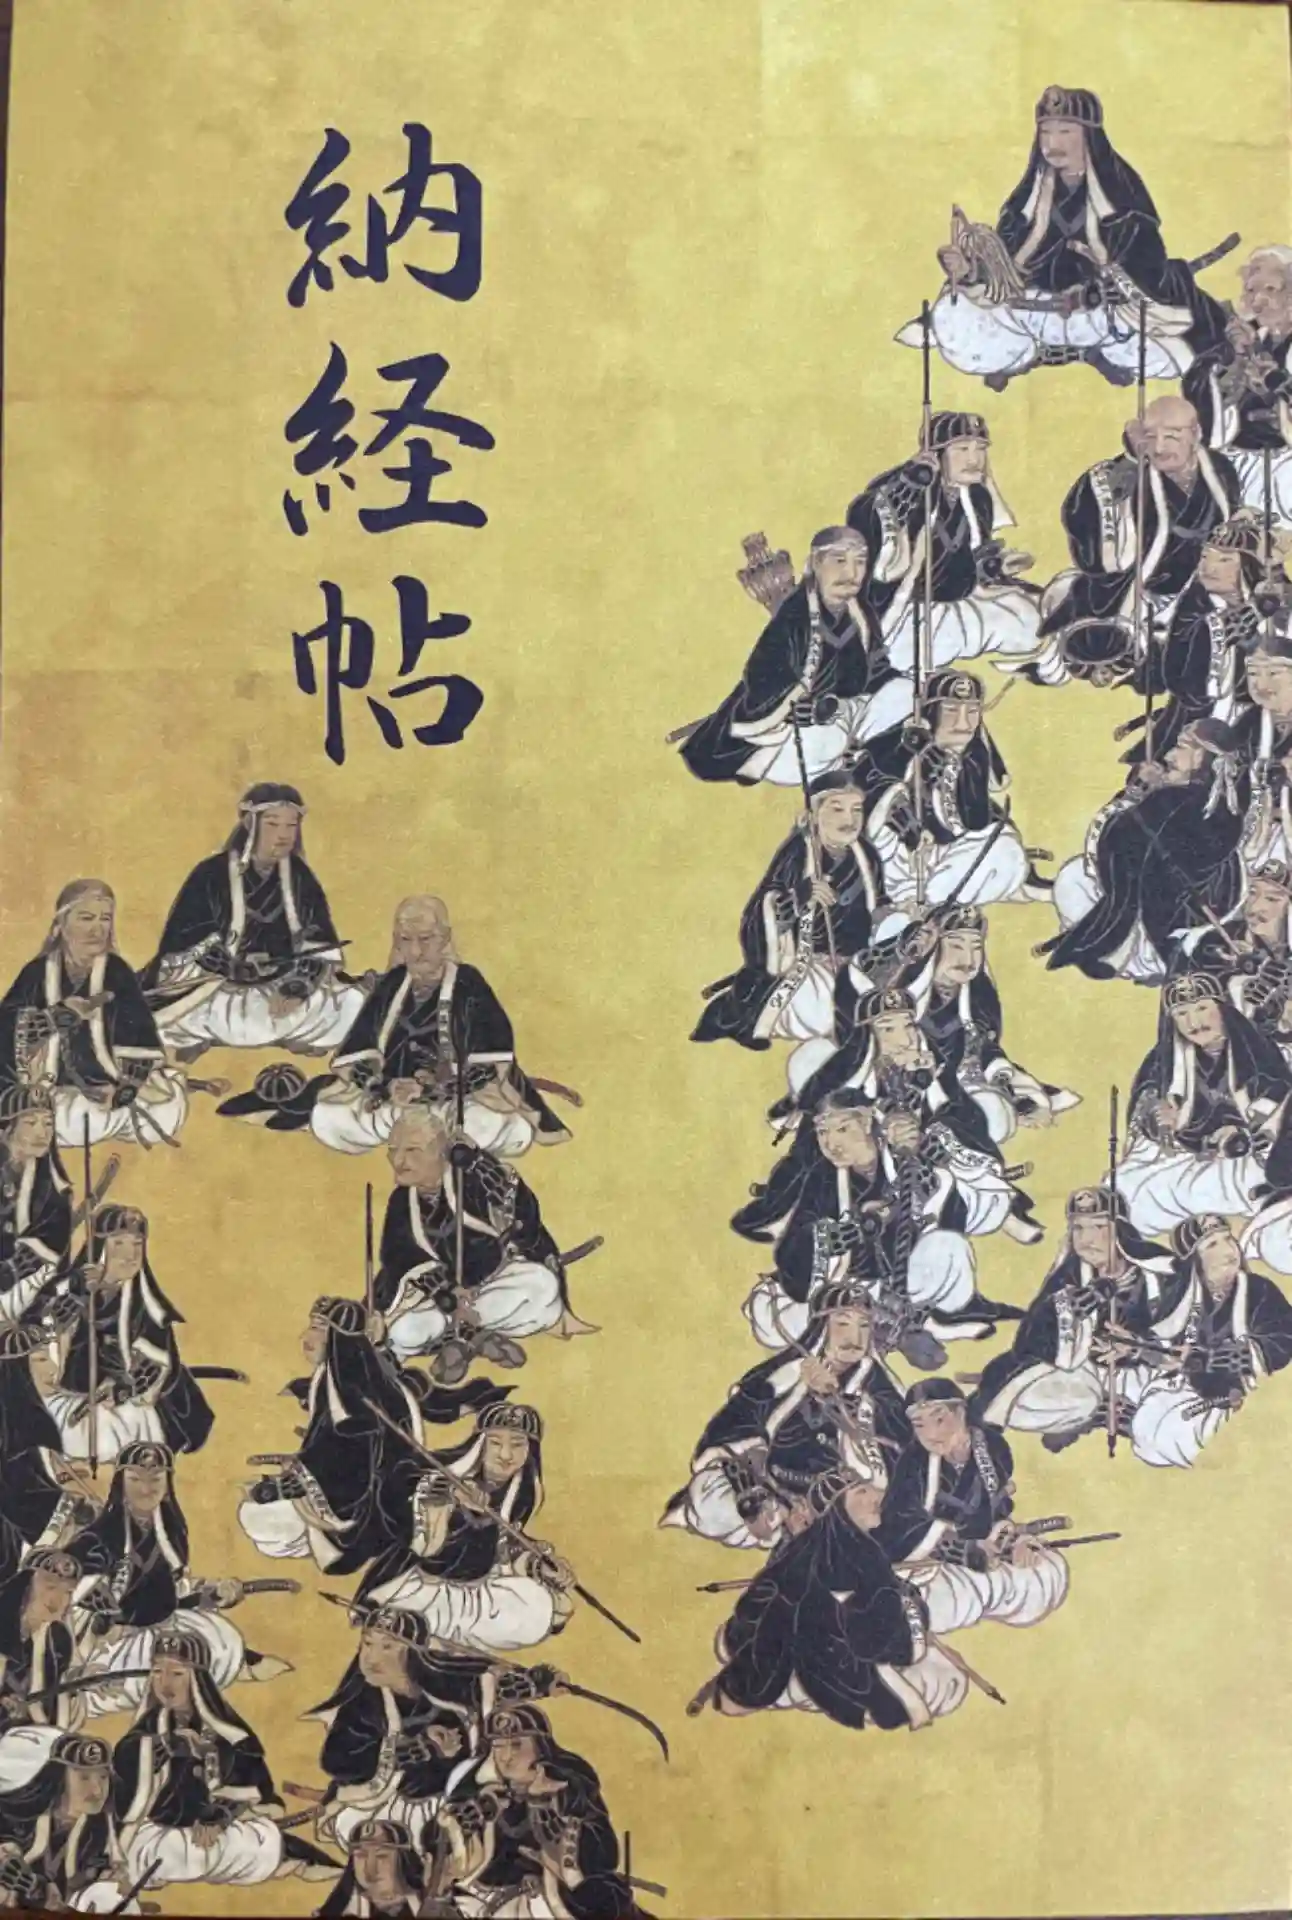 納経帖